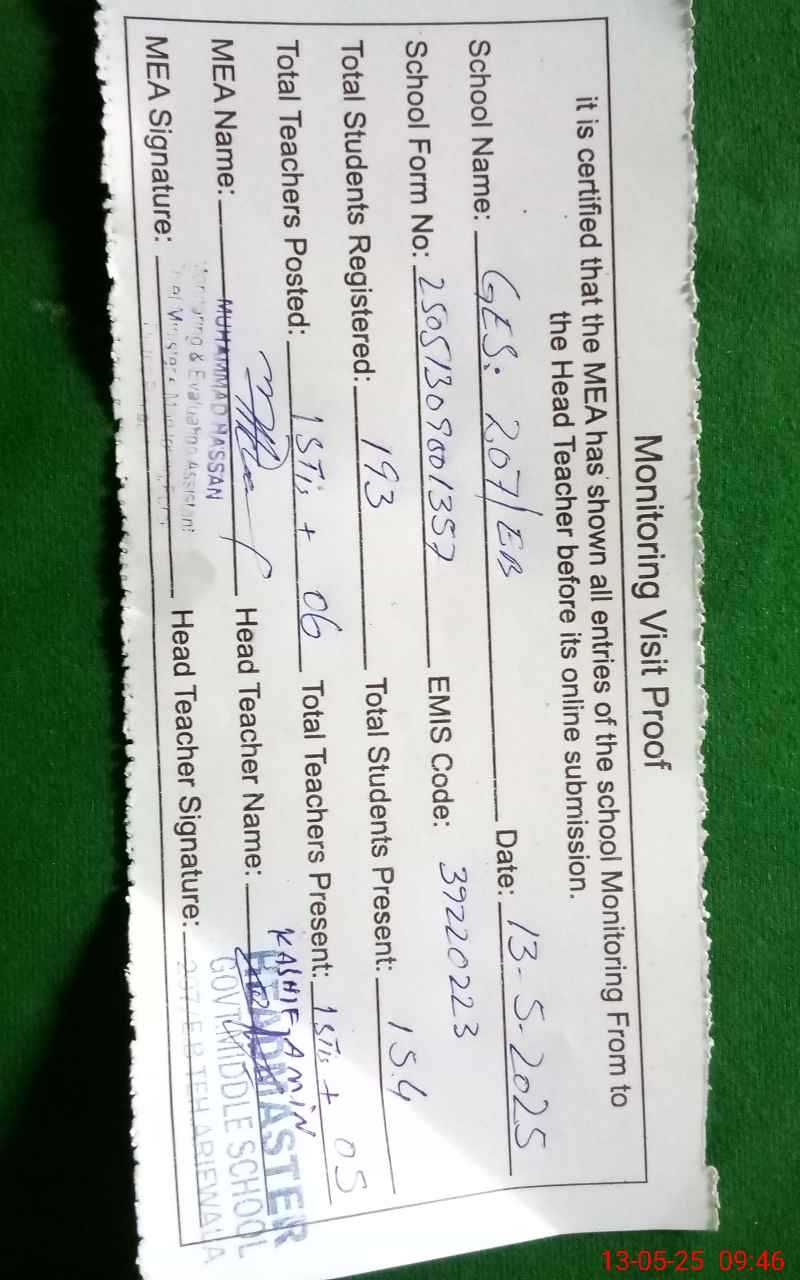 Monitoring Visit Proof
it is certified that the MEA has shown all entries of the school Monitoring From to
the Head Teacher before its online submission.
School Name: GES: 207/EB Date: 13-5-2025
School Form No: EMIS Code: 39220223
Total Students Registered: 193 Total Students Present: 154
Total Teachers Posted: 1 STis + 06 Total Teachers Present: 1 STis + 05
MEA Name: Head Teacher Name: KASHIF AMIN
MUHAMMAD HASSAN
Monitoring & Evaluation Assistant
HEADMASTER
GOVT.MIDDLE SCHOOL
207/E.B TEH.ARIFWALA
MEA Signature: Head Teacher Signature:
13-05-25 09:46